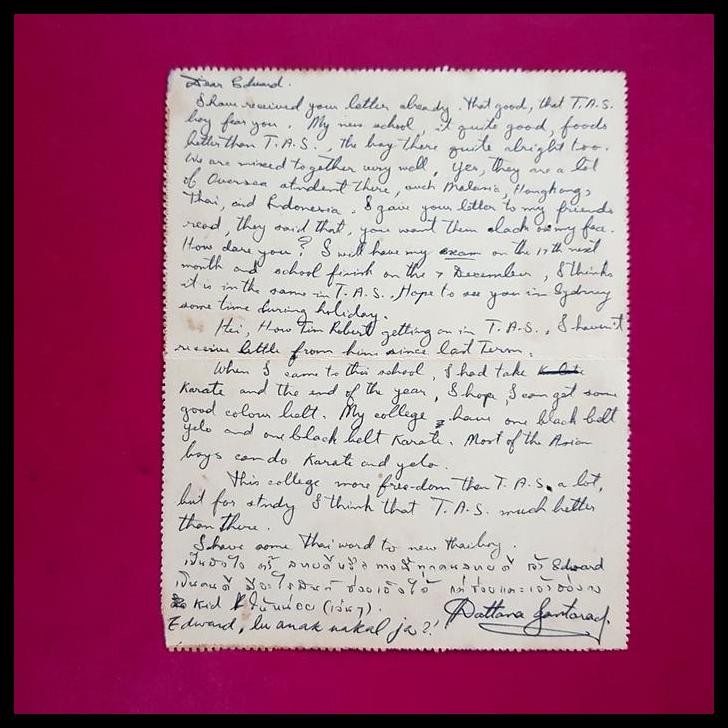 Dear Edward.
I have received your letter already. That good, that T.A.S.
boy fear you. My new school, it quite good, foods
better than T.A.S., the boy there quite alright too.
We are mixed together very well, Yes, they are a lot
of Oversea student there, such Malasia, Hongkong,
Thai, and Indonesia. I gave your letter to my friends
read, they said that, you want them slack on my face.
How dare you? I will have my exam on the 17th next
month and school finish on the 7 December, I thinks
it is in the same in T.A.S., Hope to see you in Sydney
some time during holiday.
Hei, How Tim Robert getting on in T.A.S., I haven't
receive lettle from him since last Term.
When I came to this school, I had take
Karate and the end of the year, I hope, I can get some
good colour belt. My college have one black belt
yelo and one black belt Karate. Most of the Asian
boys can do Karate and yelo.
This college more free-dom then T.A.S. a lot,
but for study I think that T.A.S. much better
than there.
I have some Thai word to new thai boy.
Edward
Kid
Edward, lu anak nakal ja?!